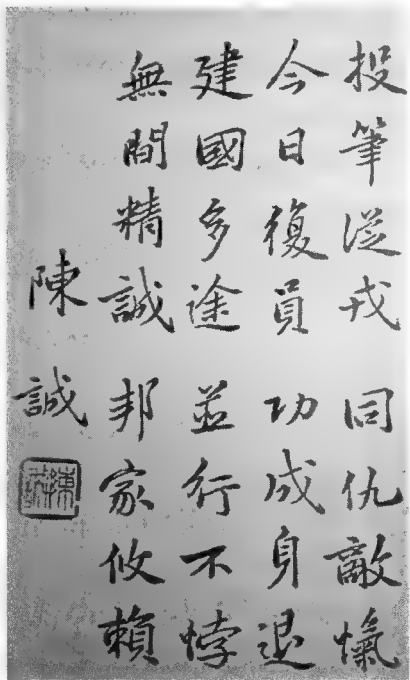 投筆從戎 同仇敵愾
今日復員 功成身退
建國多途 並行不悖
無間精誠 邦家攸賴
陳誠
陳誠